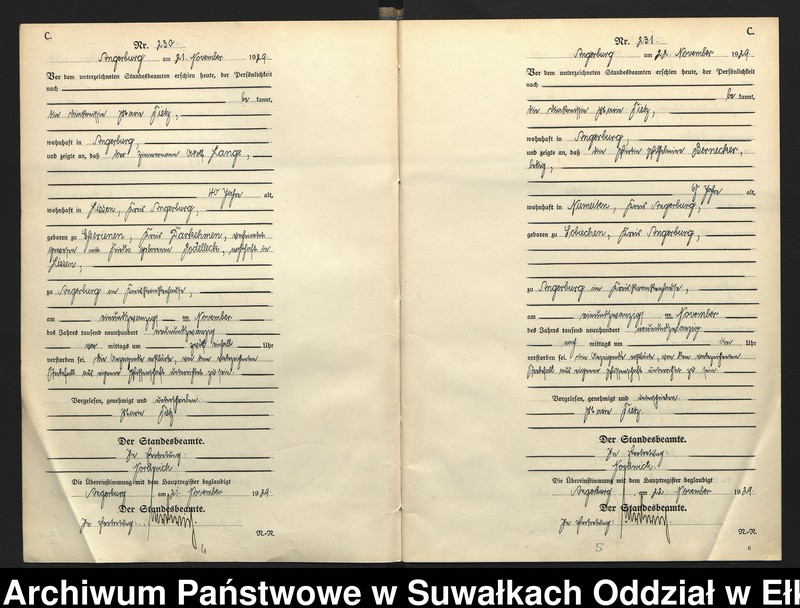 C.
Nr. 230.
Angerburg am 21. November 1929.
Vor dem unterzeichneten Standesbeamten erschien heute, der Persönlichkeit
nach
be kannt,
die Marie Tietz,
wohnhaft in Angerburg,
und zeigte an, daß der Zimmermann Lange,
40 Jahre alt,
wohnhaft in Lissen, Kreis Angerburg,
geboren zu Kreis Darkehmen, verheiratet
gewesen mit geborenen Podelleck, wohnhaft in
Lissen,
zu Angerburg im Kreiskrankenhause,
am einundzwanzigsten November
des Jahres tausend neunhundert neunundzwanzig
vor mittags um Uhr
verstorben sei. Die Anzeigende erklärte, von dem vorbezeichneten
Sterbefall aus eigener Wissenschaft unterrichtet zu sein.
Vorgelesen, genehmigt und unterschrieben.
Marie Tietz.
Der Standesbeamte.
In Vertretung:
Die Übereinstimmung mit dem Hauptregister beglaubigt
Angerburg am 21. November 1929.
Der Standesbeamte.
In Vertretung:
N.-R.
C.
Nr. 231.
Angerburg am 22. November 1929.
Vor dem unterzeichneten Standesbeamten erschien heute, der Persönlichkeit
nach
be kannt,
die Marie Tietz,
wohnhaft in Angerburg,
und zeigte an, daß die Wilhelmine Bernecker,
ledig,
alt,
wohnhaft in Kreis Angerburg,
geboren zu Sobiechen, Kreis Angerburg,
zu Angerburg im Kreiskrankenhause,
am einundzwanzigsten November
des Jahres tausend neunhundert neunundzwanzig
nach mittags um Uhr
verstorben sei. Die Anzeigende erklärte, von dem vorbezeichneten
Sterbefall aus eigener Wissenschaft unterrichtet zu sein.
Vorgelesen, genehmigt und unterschrieben.
Marie Tietz.
Der Standesbeamte.
In Vertretung:
Die Übereinstimmung mit dem Hauptregister beglaubigt
Angerburg am 22. November 1929.
Der Standesbeamte.
In Vertretung:
N.-R.
5
6
Archiwum Państwowe w Suwałkach Oddział w Ełk